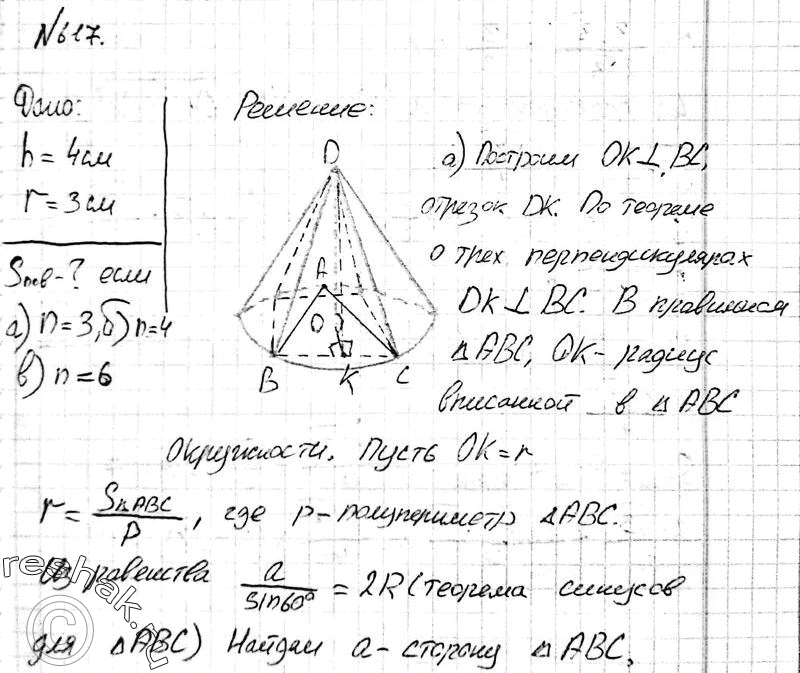 №617.
Дано:
h = 4см
r = 3см
Sпов-? если
а) n = 3, б) n=4
в) n = 6
Решение:
D
A
O
B
K
C
а) Построим OK ⊥ BC,
отрезок DK. По теореме
о трех перпендикулярах
DK ⊥ BC. В правильном
△ABC, OK - радиус
вписанной в △ABC
окружности. Пусть OK = r
r = S△ABC / p, где p - полупериметр △ABC.
Из равенства a / sin60° = 2R (теорема синусов
для △ABC) Найдем a - сторону △ABC,
reshak.ru
©